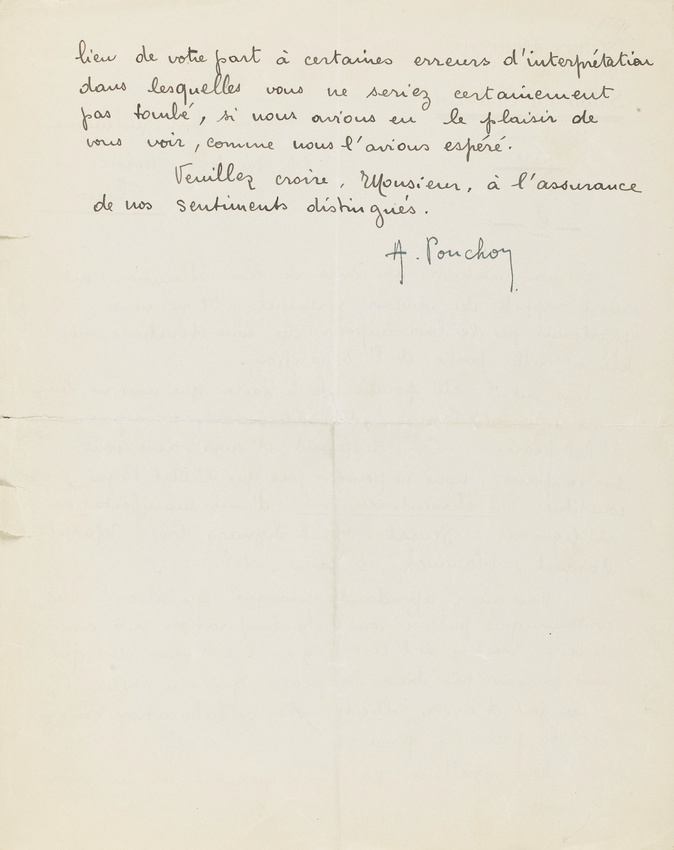 lieu de votre part à certaines erreurs d'interprétation
dans lesquelles vous ne seriez certainement
pas tombé, si nous avions eu le plaisir de
vous voir, comme nous l'avions espéré.
Veuillez croire, Monsieur, à l'assurance
de nos sentiments distingués.
A. Ponchoy